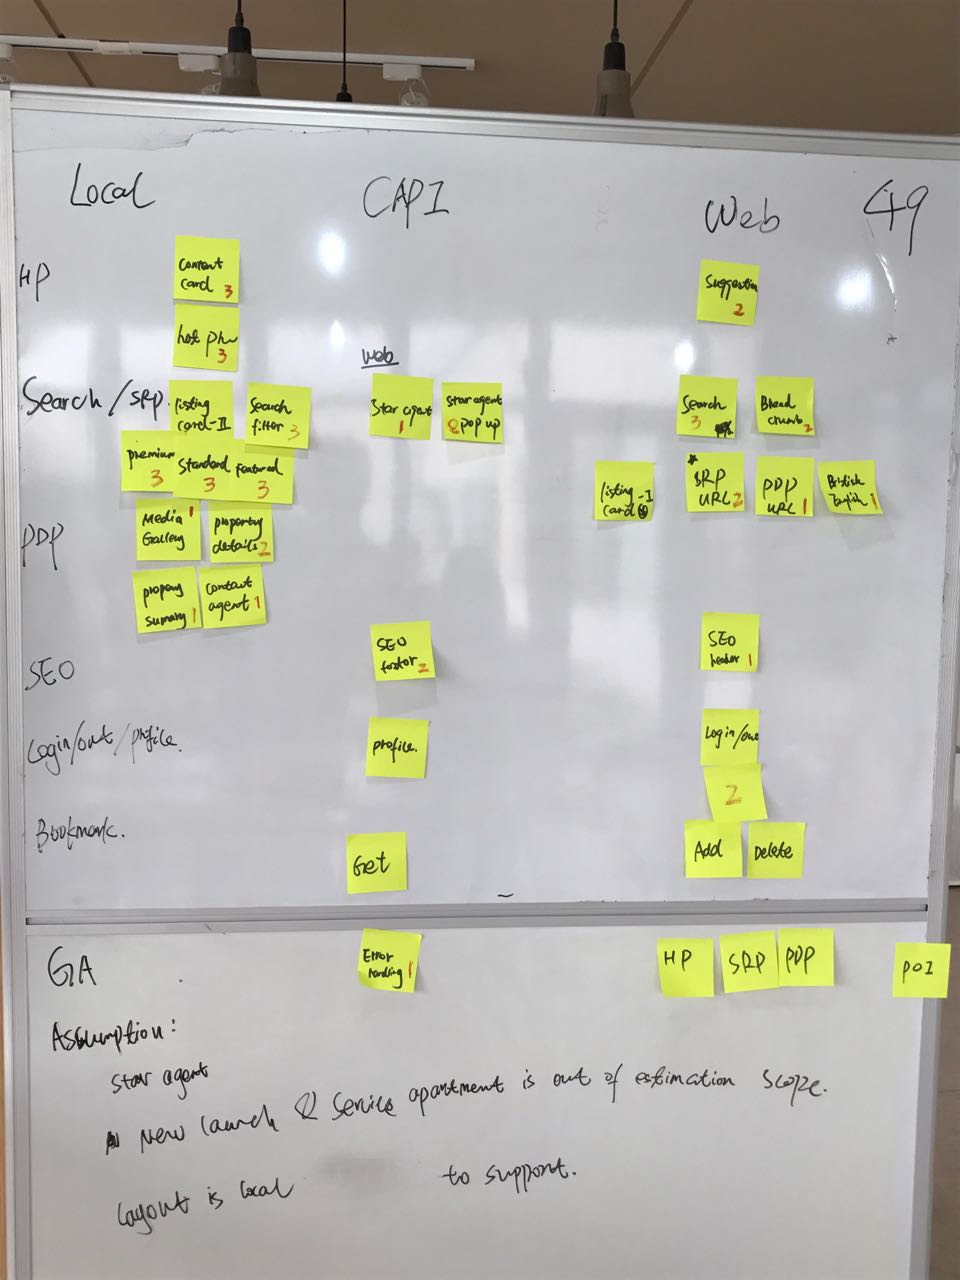 Local
CAPI
Web
49
HP
Content
card 3
hot ph
3
Suggestion
2
web
Search/SRP
listing
card-II
Search
filter 3
Star agent
1
Star agent
pop up
Search
3
Bread
crumb 2
premium
3
Standard
3
Featured
3
listing -I
card
SRP
URL 2
PDP
URL 1
British
English 1
PDP
Media 1
Gallery
property
details 2
propery
sumary 1
contact
agent 1
SEO
SEO
footor 2
SEO
header 1
Login/out/profile.
profile.
Login/out
2
Bookmark.
Get
Add
Delete
GA
Error
handling 1
HP
SRP
PDP
POI
Assumption:
star agent
New launch & Service apartment is out of estimation scope.
Layout is local to support.